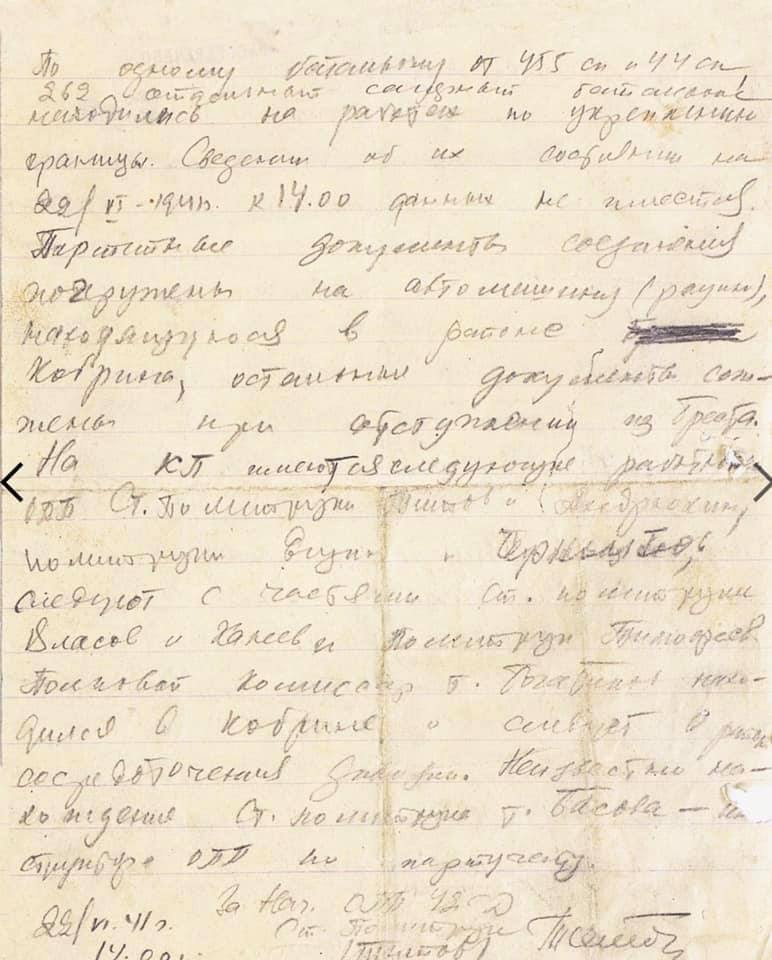 По одному батальону от 455 сп и 44 сп
262 отдельный саперный батальон
находились на работах по укреплению
границы. Сведении об их состоянии на
22/VI-1941г. к 14.00 данных не имеется.
Партийные документы соединения
погружены на автомашину (рацию),
находящуюся в районе
Кобрина, остальные документы сож-
жены при отступлении из Бреста.
На КП имеются следующие работники
ОПП Ст. Политруки и
политруки и
следуют с частями ст. политруки
Власов и и Политрук Тимофеев.
Полковой комиссар т. нахо-
дился в Кобрине и следует в район
сосредоточения дивизии. Неизвестно на-
хождение Ст. политрука т. Басова — ин-
структора ОПП по партучету.
За Нач. ОПП 42-Д
22/VI.41г. Ст. Политрук
14.00